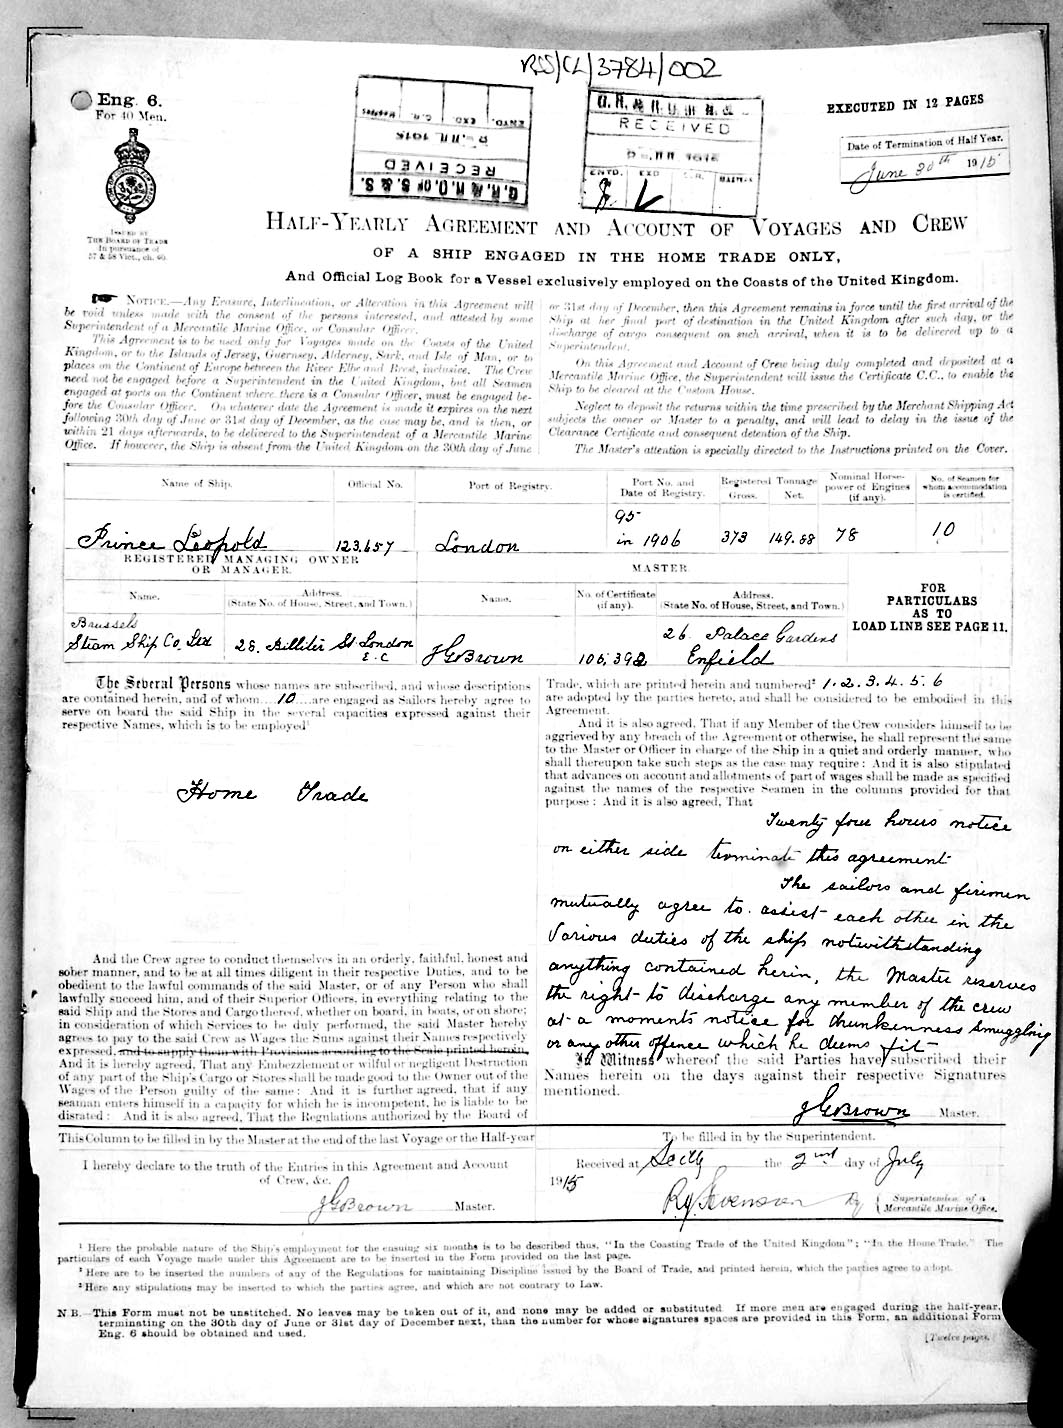 RSS/CL/3784/002
Eng. 6.
For 40 Men.
ISSUED BY
THE BOARD OF TRADE
In pursuance of
57 & 58 Vict., ch. 60.
RECEIVED
ENTD. EXD
RECEIVED
ENTD. EXD
EXECUTED IN 12 PAGES
Date of Termination of Half Year.
June 30th 1915
HALF-YEARLY AGREEMENT AND ACCOUNT OF VOYAGES AND CREW
OF A SHIP ENGAGED IN THE HOME TRADE ONLY,
And Official Log Book for a Vessel exclusively employed on the Coasts of the United Kingdom.
NOTICE.—Any Erasure, Interlineation, or Alteration in this Agreement will
be void unless made with the consent of the persons interested, and attested by some
Superintendent of a Mercantile Marine Office, or Consular Officer.
This Agreement is to be used only for Voyages made on the Coasts of the United
Kingdom, or to the Islands of Jersey, Guernsey, Alderney, Sark, and Isle of Man, or to
places on the Continent of Europe between the River Elbe and Brest, inclusive. The Crew
need not be engaged before a Superintendent in the United Kingdom, but all Seamen
engaged at ports on the Continent where there is a Consular Officer, must be engaged be-
fore the Consular Officer. On whatever date the Agreement is made it expires on the next
following 30th day of June or 31st day of December, as the case may be, and is then, or
within 21 days afterwards, to be delivered to the Superintendent of a Mercantile Marine
Office. If however, the Ship is absent from the United Kingdom on the 30th day of June
or 31st day of December, then this Agreement remains in force until the first arrival of the
Ship at her final port of destination in the United Kingdom after such day, or the
discharge of cargo consequent on such arrival, when it is to be delivered up to a
Superintendent.
On this Agreement and Account of Crew being duly completed and deposited at a
Mercantile Marine Office, the Superintendent will issue the Certificate C.C., to enable the
Ship to be cleared at the Custom House.
Neglect to deposit the returns within the time prescribed by the Merchant Shipping Act
subjects the owner or Master to a penalty, and will lead to delay in the issue of the
Clearance Certificate and consequent detention of the Ship.
The Master's attention is specially directed to the Instructions printed on the Cover.
Name of Ship. Official No. Port of Registry. Port No. and Date of Registry. Registered Tonnage Gross. Net. Nominal Horse-power of Engines (if any). No. of Seamen for whom accommodation is certified.
Prince Leopold 123.657 London 95 in 1906 373 149.88 78 10
REGISTERED MANAGING OWNER
OR MANAGER.
MASTER
Name. Address. (State No. of House, Street, and Town.) Name. No. of Certificate (if any). Address. (State No. of House, Street, and Town.)
FOR
PARTICULARS
AS TO
LOAD LINE SEE PAGE 11.
Brussels
Steam Ship Co. Ltd 28. Billiter St London E.C JGBrown 106,392 26 Palace Gardens Enfield
The Several Persons whose names are subscribed, and whose descriptions
are contained herein, and of whom 10 are engaged as Sailors hereby agree to
serve on board the said Ship in the several capacities expressed against their
respective Names, which is to be employed¹
Home Trade
And the Crew agree to conduct themselves in an orderly, faithful, honest and
sober manner, and to be at all times diligent in their respective Duties, and to be
obedient to the lawful commands of the said Master, or of any Person who shall
lawfully succeed him, and of their Superior Officers, in everything relating to the
said Ship and the Stores and Cargo thereof, whether on board, in boats, or on shore;
in consideration of which Services to be duly performed, the said Master hereby
agrees to pay to the said Crew as Wages the Sums against their Names respectively
expressed, and to supply them with Provisions according to the Scale printed herein.
And it is hereby agreed, That any Embezzlement or wilful or negligent Destruction
of any part of the Ship's Cargo or Stores shall be made good to the Owner out of the
Wages of the Person guilty of the same: And it is further agreed, that if any
seaman enters himself in a capacity for which he is incompetent, he is liable to be
disrated: And it is also agreed, That the Regulations authorized by the Board of
Trade, which are printed herein and numbered² 1. 2. 3. 4. 5. 6
are adopted by the parties hereto, and shall be considered to be embodied in this
Agreement.
And it is also agreed, That if any Member of the Crew considers himself to be
aggrieved by any breach of the Agreement or otherwise, he shall represent the same
to the Master or Officer in charge of the Ship in a quiet and orderly manner, who
shall thereupon take such steps as the case may require: And it is also stipulated
that advances on account and allotments of part of wages shall be made as specified
against the names of the respective Seamen in the columns provided for that
purpose: And it is also agreed, That
Twenty four hours notice
on either side terminate this agreement
The sailors and firemen
mutually agree to assist each other in the
various duties of the ship notwithstanding
anything contained herin, the Master reserves
the right to discharge any member of the crew
at a moments notice for drunkenness smuggling
or any other offence which he deems fit
In Witness whereof the said Parties have subscribed their
Names herein on the days against their respective Signatures
mentioned.
JGBrown Master.
This Column to be filled in by the Master at the end of the last Voyage or the Half-year
I hereby declare to the truth of the Entries in this Agreement and Account
of Crew, &c.
JGBrown Master.
To be filled in by the Superintendent.
Received at the 2nd day of July
1915
Superintendent of a
Mercantile Marine Office.
¹ Here the probable nature of the Ship's employment for the ensuing six months is to be described thus, "In the Coasting Trade of the United Kingdom"; "In the Home Trade." The
particulars of each Voyage made under this Agreement are to be inserted in the Form provided on the last page.
² Here are to be inserted the numbers of any of the Regulations for maintaining Discipline issued by the Board of Trade, and printed herein, which the parties agree to adopt.
³ Here any stipulations may be inserted to which the parties agree, and which are not contrary to Law.
N.B.—This Form must not be unstitched. No leaves may be taken out of it, and none may be added or substituted. If more men are engaged during the half-year,
terminating on the 30th day of June or 31st day of December next, than the number for whose signatures spaces are provided in this Form, an additional Form
Eng. 6 should be obtained and used.
[Twelve pages.